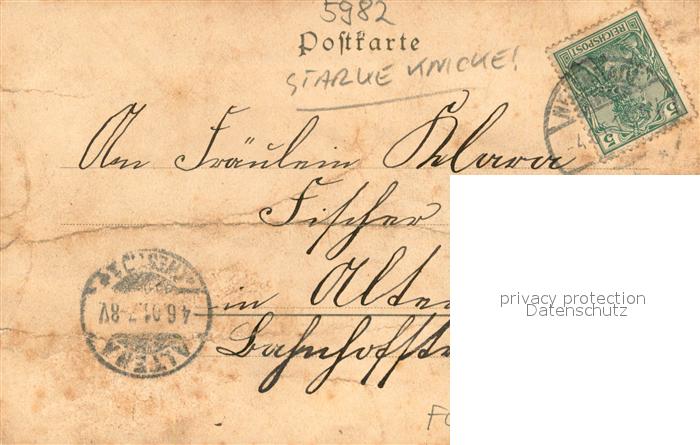 5982
Postkarte
STARKE KNICKE!
REICHSPOST
5 5
An Fräulein Klara
Fischer
in Alte
Bahnhofstr
ALTENA
4.6.01.7-8V
privacy protection
Datenschutz